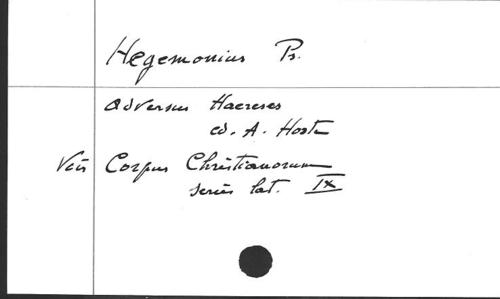 Hegemonius Ps.
adversus Haereses
ed. A. Hoste
Voir Corpus Christianorum
series lat. IX